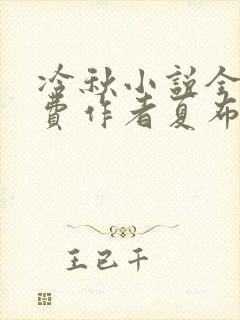 冷秋小说全
费作者夏布
王已千